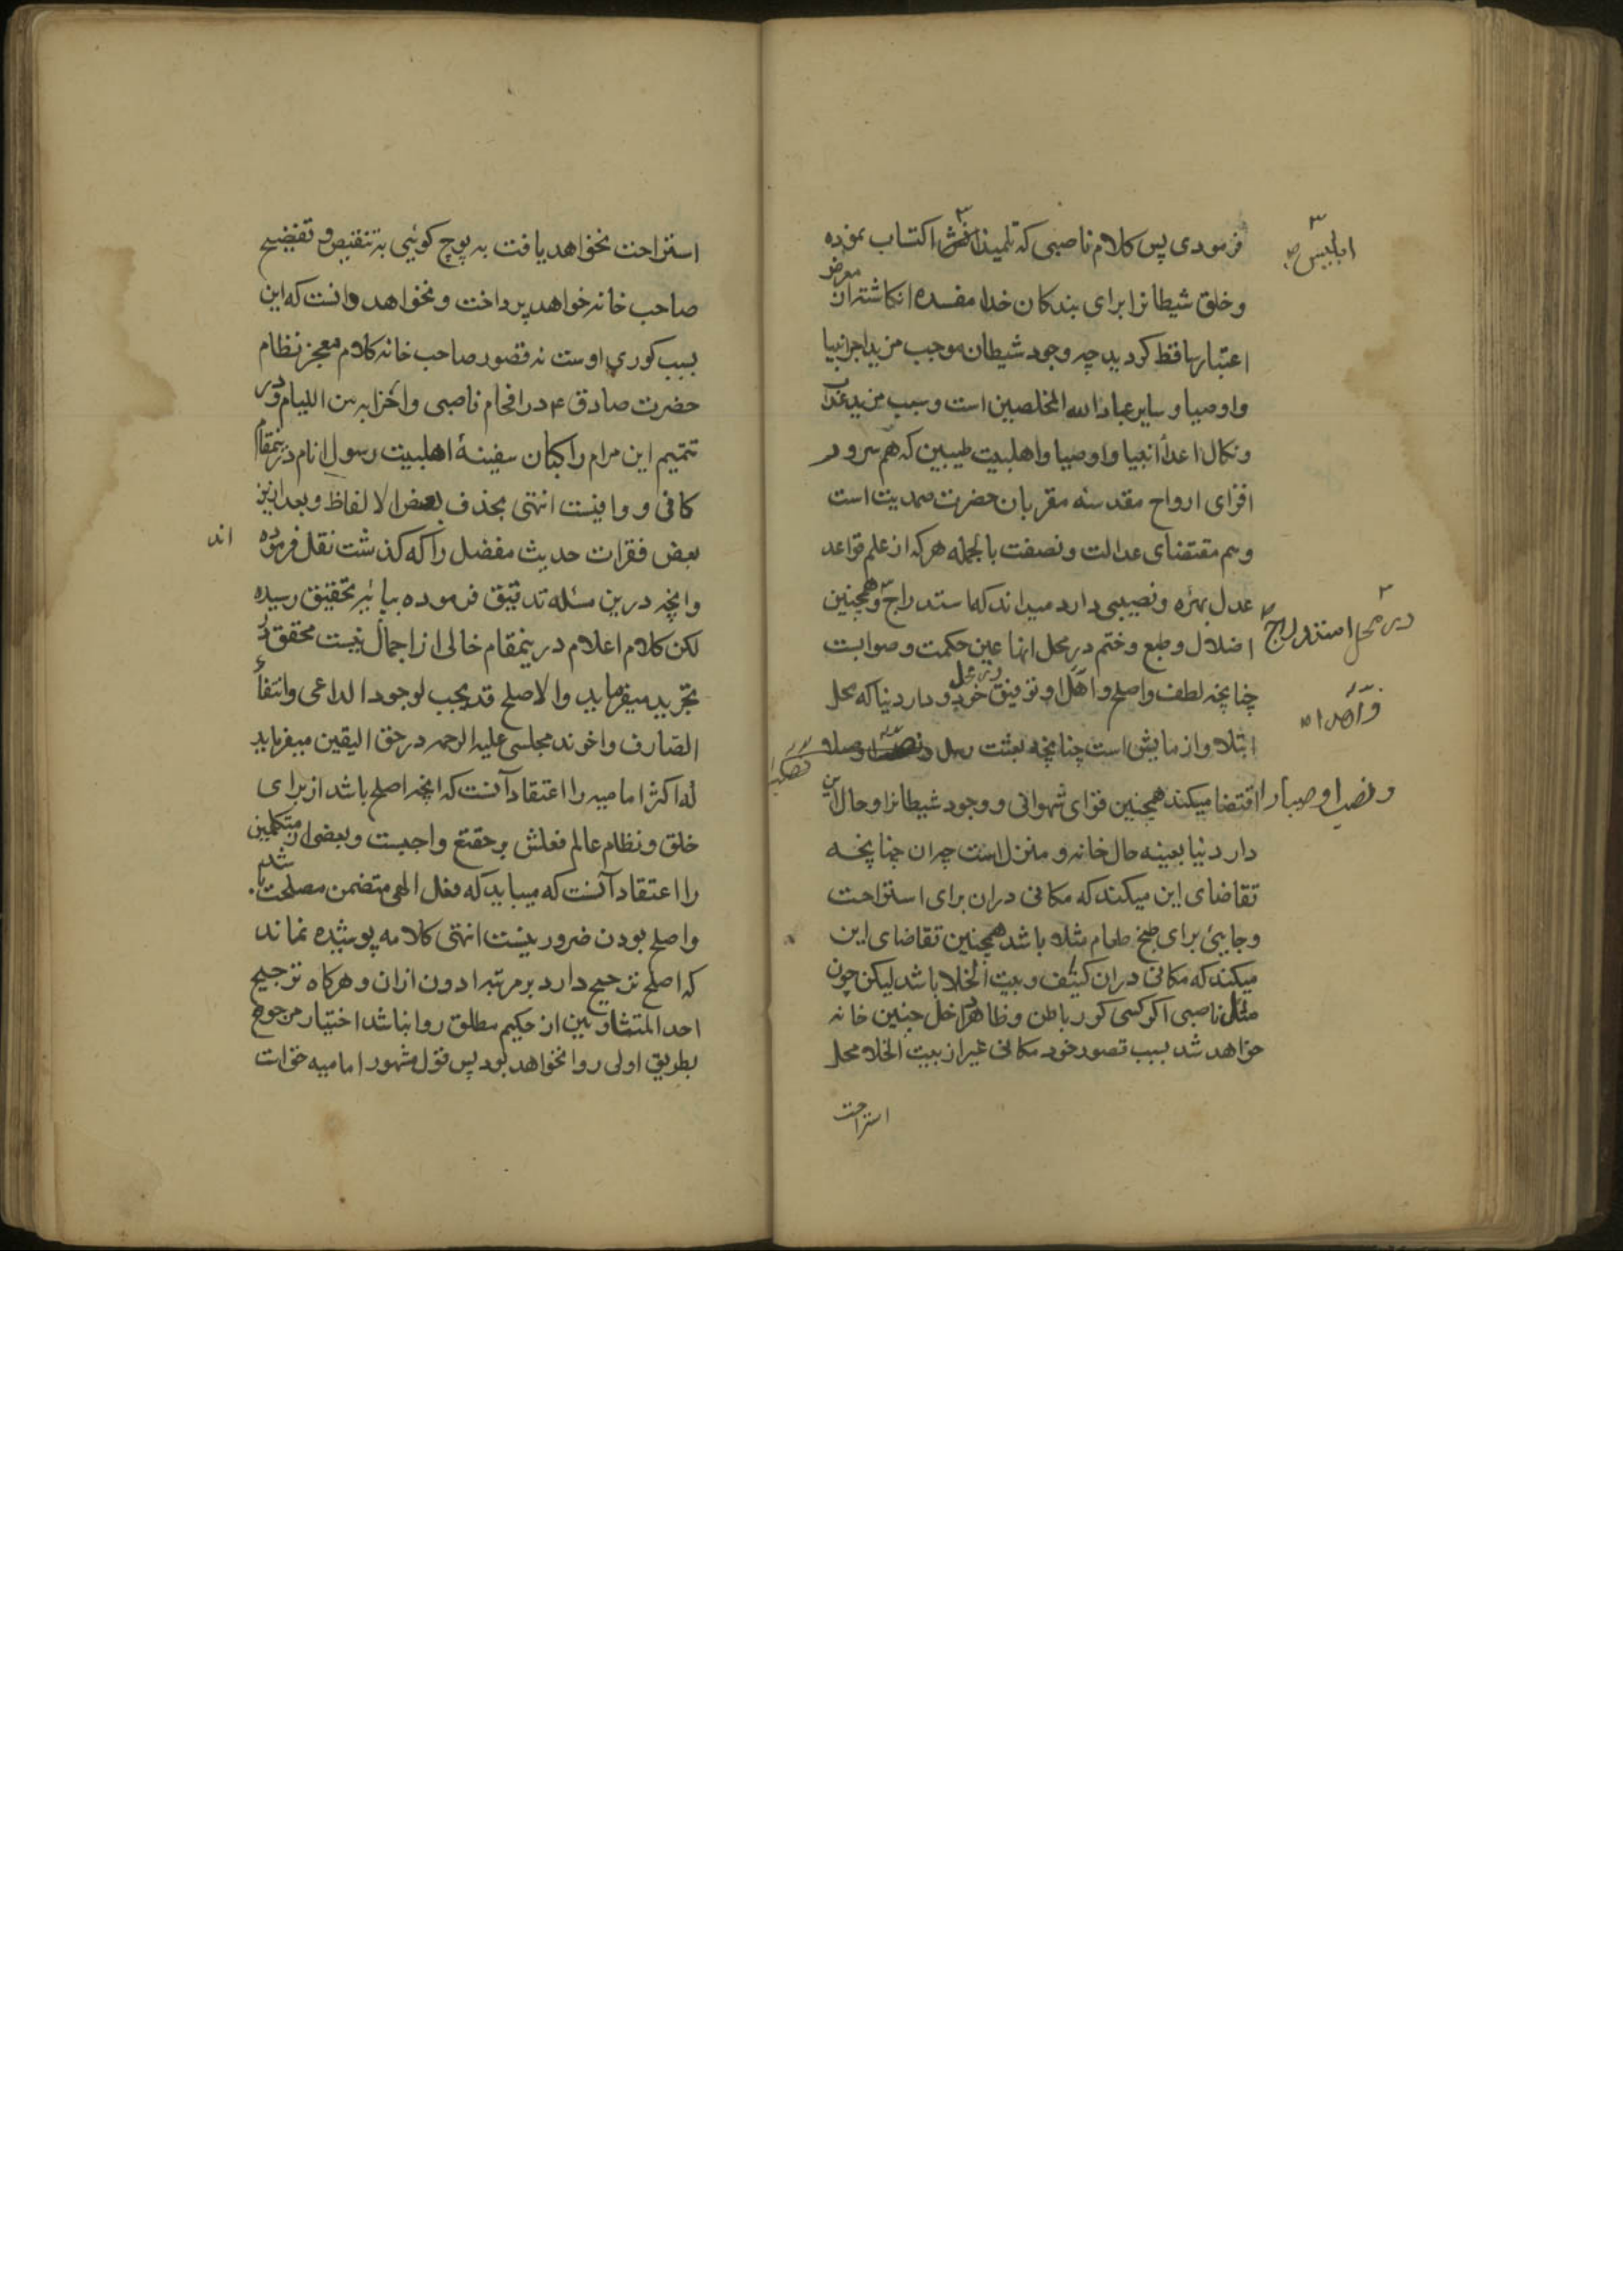 فرمودی پس کلام ناصبی که تلمیذانش اکتساب نموده
ابلیس صح
و خلق شیطانرا برای بندکان خدا مفسده انکاشته از
معرض
اعتبار ساقط کردید چه وجود شیطان موجب مزید اجر انبیا
و اوصیا و سایر عباد الله المخلصین است و سبب مزید عذاب
و نکال اعدا انبیا و اوصیا و اهلبیت طیبین که هم سرور
افزای ارواح مقدسه مقربان حضرت صمدیت است
و هم مقتضای عدالت و نصفت بالجمله هر که از علم قواعد
عدل بهره و نصیبی دارد میداند که استدراج و همچنین
در محل استدراج
اضلال و طبع و ختم در محل انها عین حکمت و صوابست
چنانچه لطف و اصلح و توفیق در محل خود و دار دنیا که محل
ابتلا و ازمایش است چنانچه بعثت رسل
و نصب اوصیا را اقتضا میکند همچنین قوای شهوانی و وجود شیطانرا و حال این
دار دنیا بعینه حال خانه و منزل است چنانچه
تقاضای این میکند که مکانی دران برای استراحت
و جایی برای طبخ طعام مثلا باشد همچنین تقاضای این
میکند که مکانی دران کنیف و بیت الخلا باشد لیکن چون
مثل ناصبی اکر کسی کور باطن و ظاهر داخل چنین خانه
خواهد شد بسبب تصور خود مکانی غیر از بیت الخلا محل
استراحت
استراحت نخواهد یافت به پوچ کوئیی به تنقیص و تفضیح
صاحب خانه خواهد پرداخت و نخواهد دانست که این
بسبب کوری اوست نه قصور صاحب خانه کلام معجز نظام
حضرت صادق ع در افحام ناصبی و احزابه من اللیام و در
تتمیم این مرام راکبان سفینۀ اهلبیت رسول انام درینمقام
کافی و وافیست انتهی بحذف بعض الالفاظ و بعد ازین
بعض فقرات حدیث مفضل را که کذشت نقل فرموده اند
وانچه درین مسئله تدقیق فرموده بپایۀ تحقیق رسیده
لکن کلام اعلام درینمقام خالی از اجمال نیست محقق در
تجرید میفرماید والاصلح قد یجب لوجود الداعی وانتفاء
الصارف واخوند مجلسی علیه الرحمه در حق الیقین میفرماید
که اکثر امامیه را اعتقاد آنست که انچه اصلح باشد از برای
خلق و نظام عالم فعلش بر حقتع واجبست و بعضی از متکلمین
را اعتقاد آنست که میباید که فعل الهی متضمن مصلحت باشد
و اصلح بودن ضرور نیست انتهی کلامه پوشیده نماند
که اصلح ترجیح دارد بر مرتبه ادون ازان و هرکاه ترجیح
احد المتساویین از حکیم مطلق روا نباشد اختیار مرجوح
بطریق اولی روا نخواهد بود پس قول مشهور امامیه